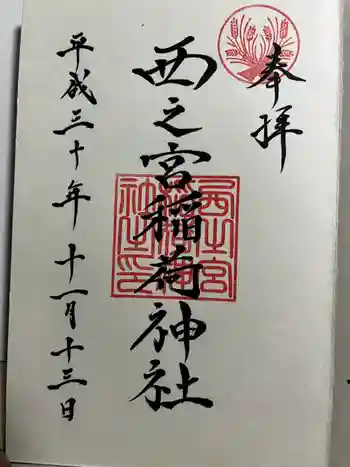 奉拝
西之宮稲荷神社
平成三十年 十一月十三日